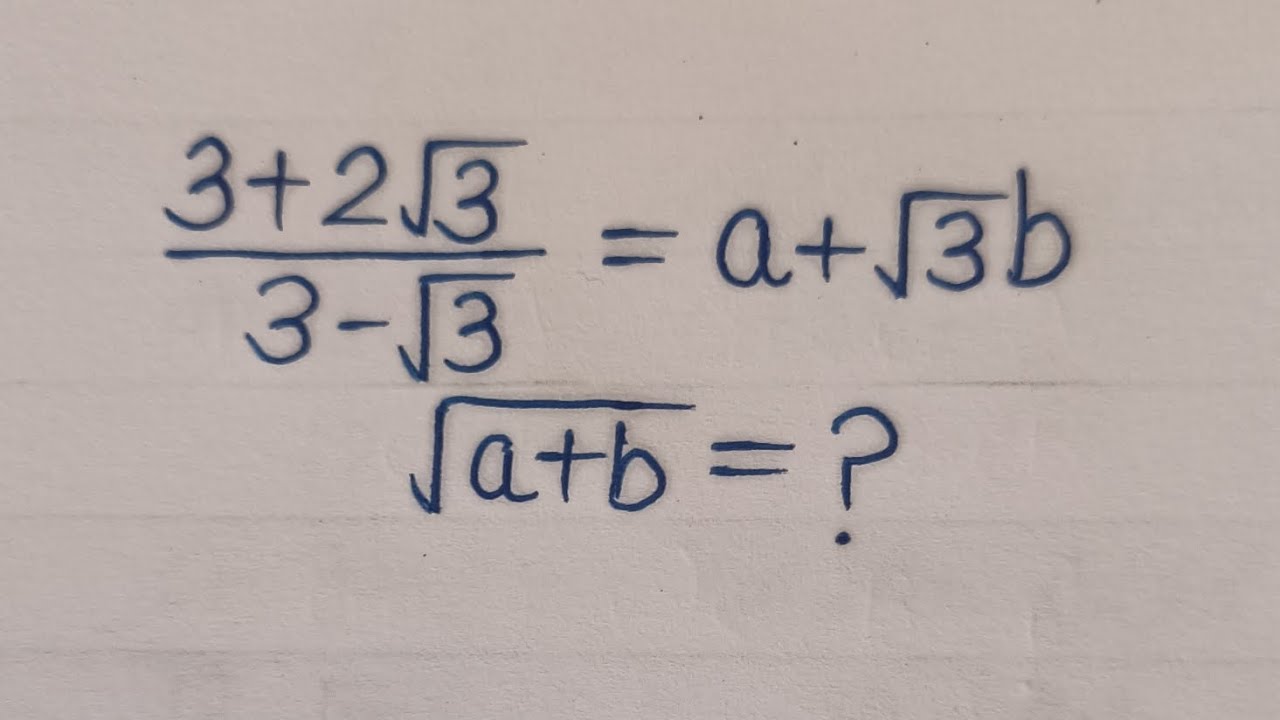 3+2√3 / 3-√3 = a+√3b
√a+b = ?